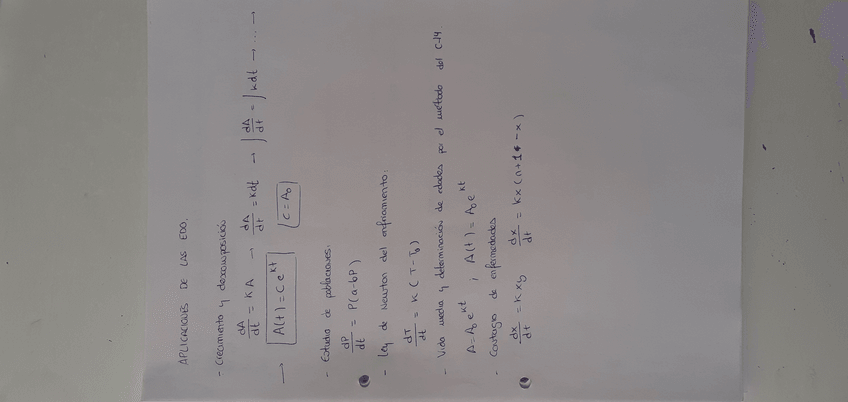 APLICACIONES DE LAS EDO.
- Crecimiento y descomposición
dA/dt = KA → dA/dt = Kdt → ∫ dA/dt = ∫ Kdt → ... →
→ A(t) = C e^kt C = A₀
- Estudio de poblaciones:
dP/dt = P(a-bP)
- Ley de Newton del enfriamiento:
dT/dt = K (T-T₀)
- Vida media y determinación de edades por el método del C-14
A = A₀ e^kt ; A(t) = A₀ e^kt
- Contagio de enfermedades
dx/dt = Kxy dx/dt = Kx(n+1-x)